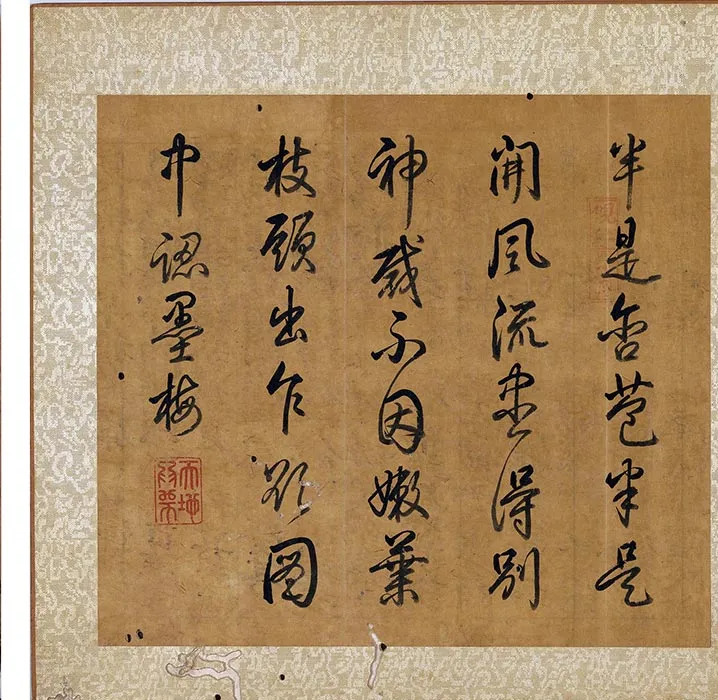 半是含苞半是
開風流盡得別
神裁不因嫩葉
枝頭出乍欲圖
中認墨梅